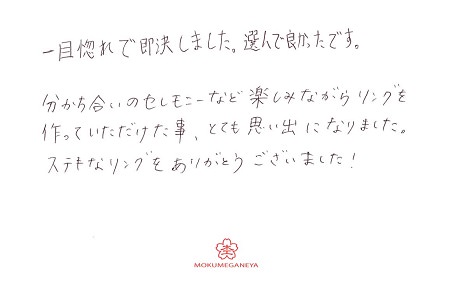 一目惚れで即決しました。選んで良かったです。
分かち合いのセレモニーなど楽しみながらリングを
作っていただけた事、とても思い出になりました。
ステキなリングをありがとうございました!
MOKUMEGANEYA